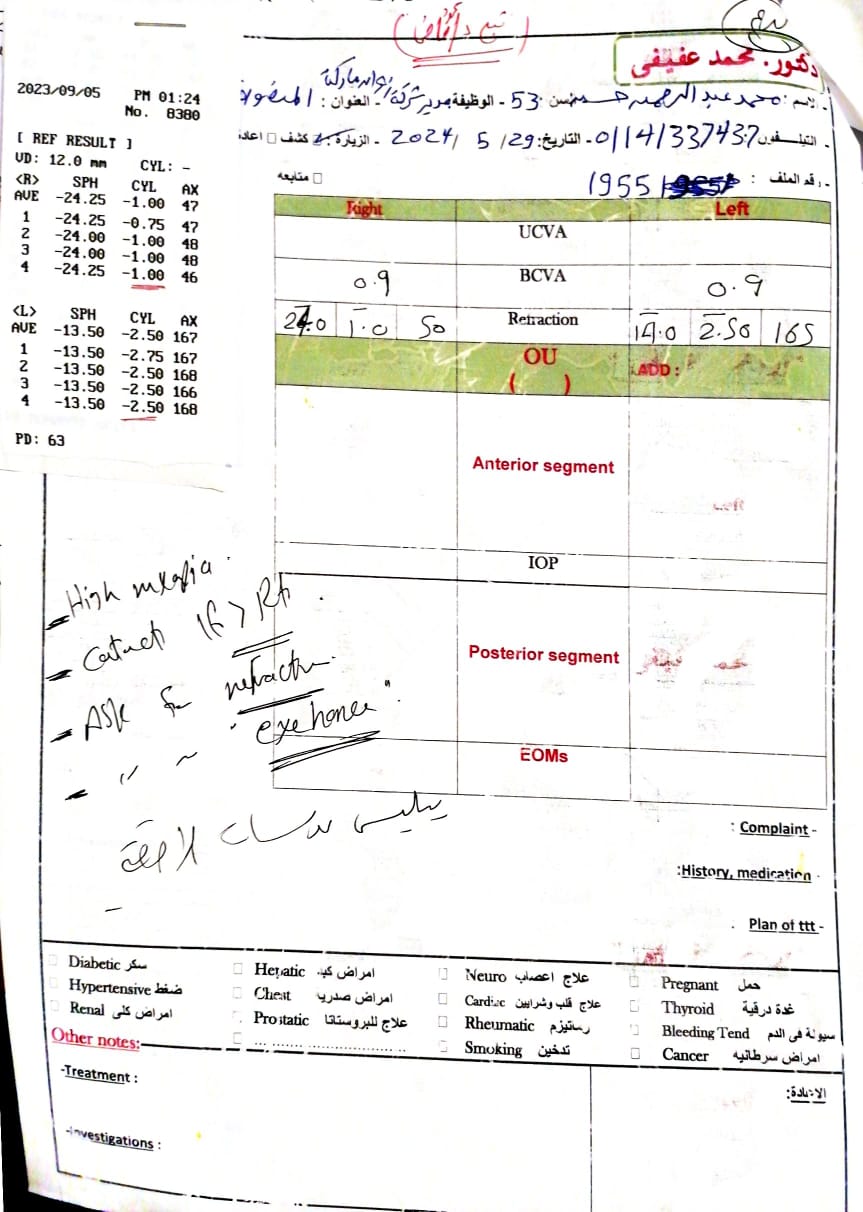 دكتور. محمد عفيفي
- الاسم : محمد عبد الرحمن السن : 53 - الوظيفة مدير شركة - العنوان :
- التيلفون : 01141337437 - التاريخ: 29/ 5 /2024 - الزيارة: كشف □ اعادة
□ متابعه
- رقم الملف : 1955
2023/09/05 PM 01:24
No. 8380
[ REF RESULT ]
VD: 12.0 mm CYL: -
<R> SPH CYL AX
AVE -24.25 -1.00 47
1 -24.25 -0.75 47
2 -24.00 -1.00 48
3 -24.00 -1.00 48
4 -24.25 -1.00 46
<L> SPH CYL AX
AVE -13.50 -2.50 167
1 -13.50 -2.75 167
2 -13.50 -2.50 168
3 -13.50 -2.50 166
4 -13.50 -2.50 168
PD: 63
Right Left
UCVA
0.9 BCVA 0.9
24.0 1.0 50 Refraction 14.0 2.50 165
OU
( ) ADD :
Anterior segment
IOP
Posterior segment
EOMs
- High myopia .
- Cataract lt > Rt .
- Ask for refractive .
- " ~ " exchange " .
يلبس عدسات لاصقة
-
: Complaint -
:History, medication -
. Plan of ttt -
□ Diabetic سكر □ Hepatic امراض كبد □ Neuro علاج اعصاب □ Pregnant حمل
□ Hypertensive ضغط □ Chest امراض صدرية □ Cardiac علاج قلب وشرايين □ Thyroid غدة درقية
□ Renal امراض كلى □ Prostatic علاج للبروستاتا □ Rheumatic روماتيزم □ Bleeding Tend سيولة فى الدم
□ ... ........ ........................ □ Smoking تدخين □ Cancer امراض سرطانيه
Other notes:
-Treatment :
-Investigations :